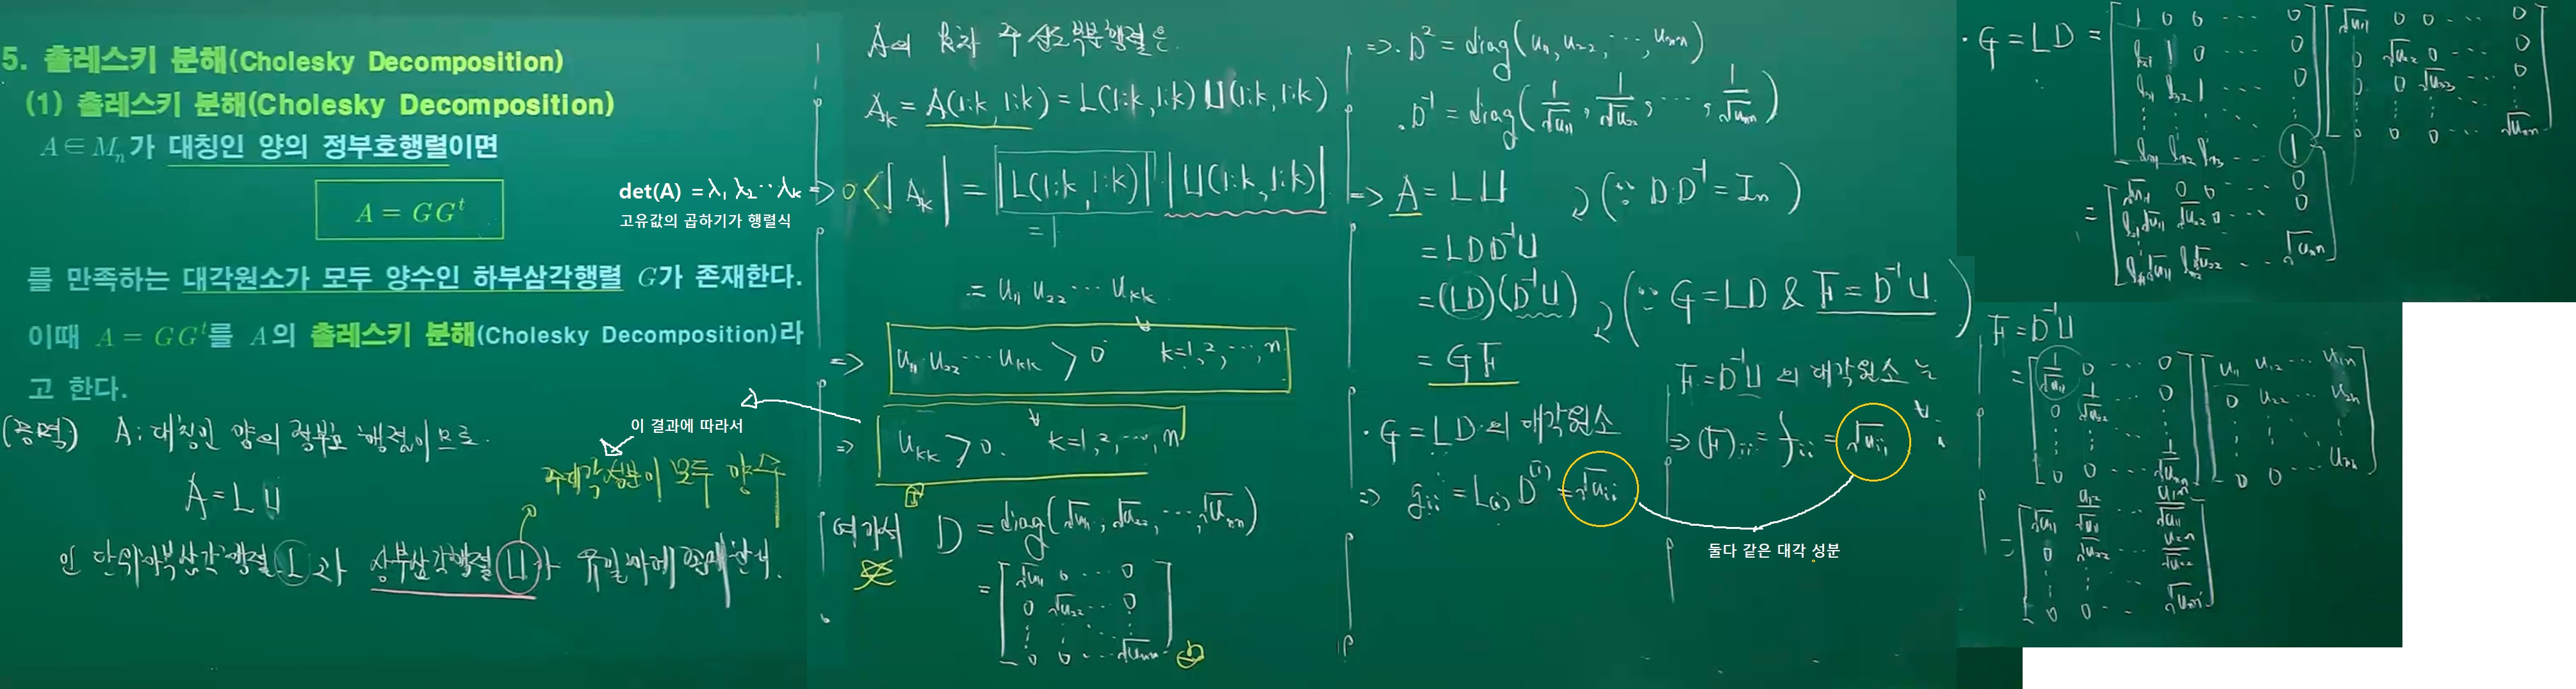 5. 촐레스키 분해(Cholesky Decomposition)
(1) 촐레스키 분해(Cholesky Decomposition)
A∈Mₙ가 대칭인 양의 정부호행렬이면
A = GGᵗ
를 만족하는 대각원소가 모두 양수인 하부삼각행렬 G가 존재한다.
이때 A = GGᵗ를 A의 촐레스키 분해(Cholesky Decomposition)라
고 한다.
(증명) A: 대칭인 양의 정부호 행렬이므로
A = L U
인 단위하부삼각행렬 L과 상부삼각행렬 U가 유일하게 존재한다.
주대각성분이 모두 양수
이 결과에 따라서
det(A) = λ₁ λ₂ ⋯ λₖ
고유값의 곱하기가 행렬식
A의 k차 주 선도부분행렬은
Aₖ = A(1:k, 1:k) = L(1:k, 1:k) U(1:k, 1:k)
=> 0 < |Aₖ| = |L(1:k, 1:k)| |U(1:k, 1:k)|
= 1
= u₁₁ u₂₂ ⋯ uₖₖ
=> u₁₁ u₂₂ ⋯ uₖₖ > 0 ∀ k=1, 2, ⋯, n
=> uₖₖ > 0. ∀ k=1, 2, ⋯, n
여기서 D = diag(√u₁₁, √u₂₂, ⋯, √uₙₙ)
= [√u₁₁ 0 ⋯ 0
0 √u₂₂ ⋯ 0
⋮ ⋮ ⋱ ⋮
0 0 ⋯ √uₙₙ]
=> · D² = diag(u₁₁, u₂₂, ⋯, uₙₙ)
· D⁻¹ = diag(1/√u₁₁, 1/√u₂₂, ⋯, 1/√uₙₙ)
=> A = L U (∵ D D⁻¹ = Iₙ)
= L D D⁻¹ U
= (LD)(D⁻¹U) (∵ G = LD & F = D⁻¹U)
= G F
· G = LD의 대각원소
=> gᵢᵢ = L₍ᵢ₎ D⁽ⁱ⁾ = √uᵢᵢ
F = D⁻¹U의 대각원소는
=> (F)ᵢᵢ = fᵢᵢ = √uᵢᵢ ∀ i
둘다 같은 대각 성분
· G = LD = [1 0 0 ⋯ 0
l₂₁ 1 0 ⋯ 0
l₃₁ l₃₂ 1 ⋯ 0
⋮ ⋮ ⋮ ⋮
lₙ₁ lₙ₂ lₙ₃ ⋯ 1]
[√u₁₁ 0 0 ⋯ 0
0 √u₂₂ 0 ⋯ 0
0 0 √u₃₃ ⋯ 0
⋮ ⋮ ⋮ ⋮
0 0 0 ⋯ √uₙₙ]
= [√u₁₁ 0 0 ⋯ 0
l₂₁√u₁₁ √u₂₂ 0 ⋯ 0
⋮
lₙ₁√u₁₁ lₙ₂√u₂₂ ⋯ √uₙₙ]
F = D⁻¹U
= [1/√u₁₁ 0 ⋯ 0
0 1/√u₂₂ ⋯ 0
⋮ ⋮ ⋮
0 0 ⋯ 1/√uₙₙ]
[u₁₁ u₁₂ ⋯ u₁ₙ
0 u₂₂ ⋯ u₂ₙ
⋮ ⋮ ⋮
0 0 ⋯ uₙₙ]
= [√u₁₁ u₁₂/√u₁₁ ⋯ u₁ₙ/√u₁₁
0 √u₂₂ ⋯ u₂ₙ/√u₂₂
⋮ ⋮ ⋮
0 0 ⋯ √uₙₙ]